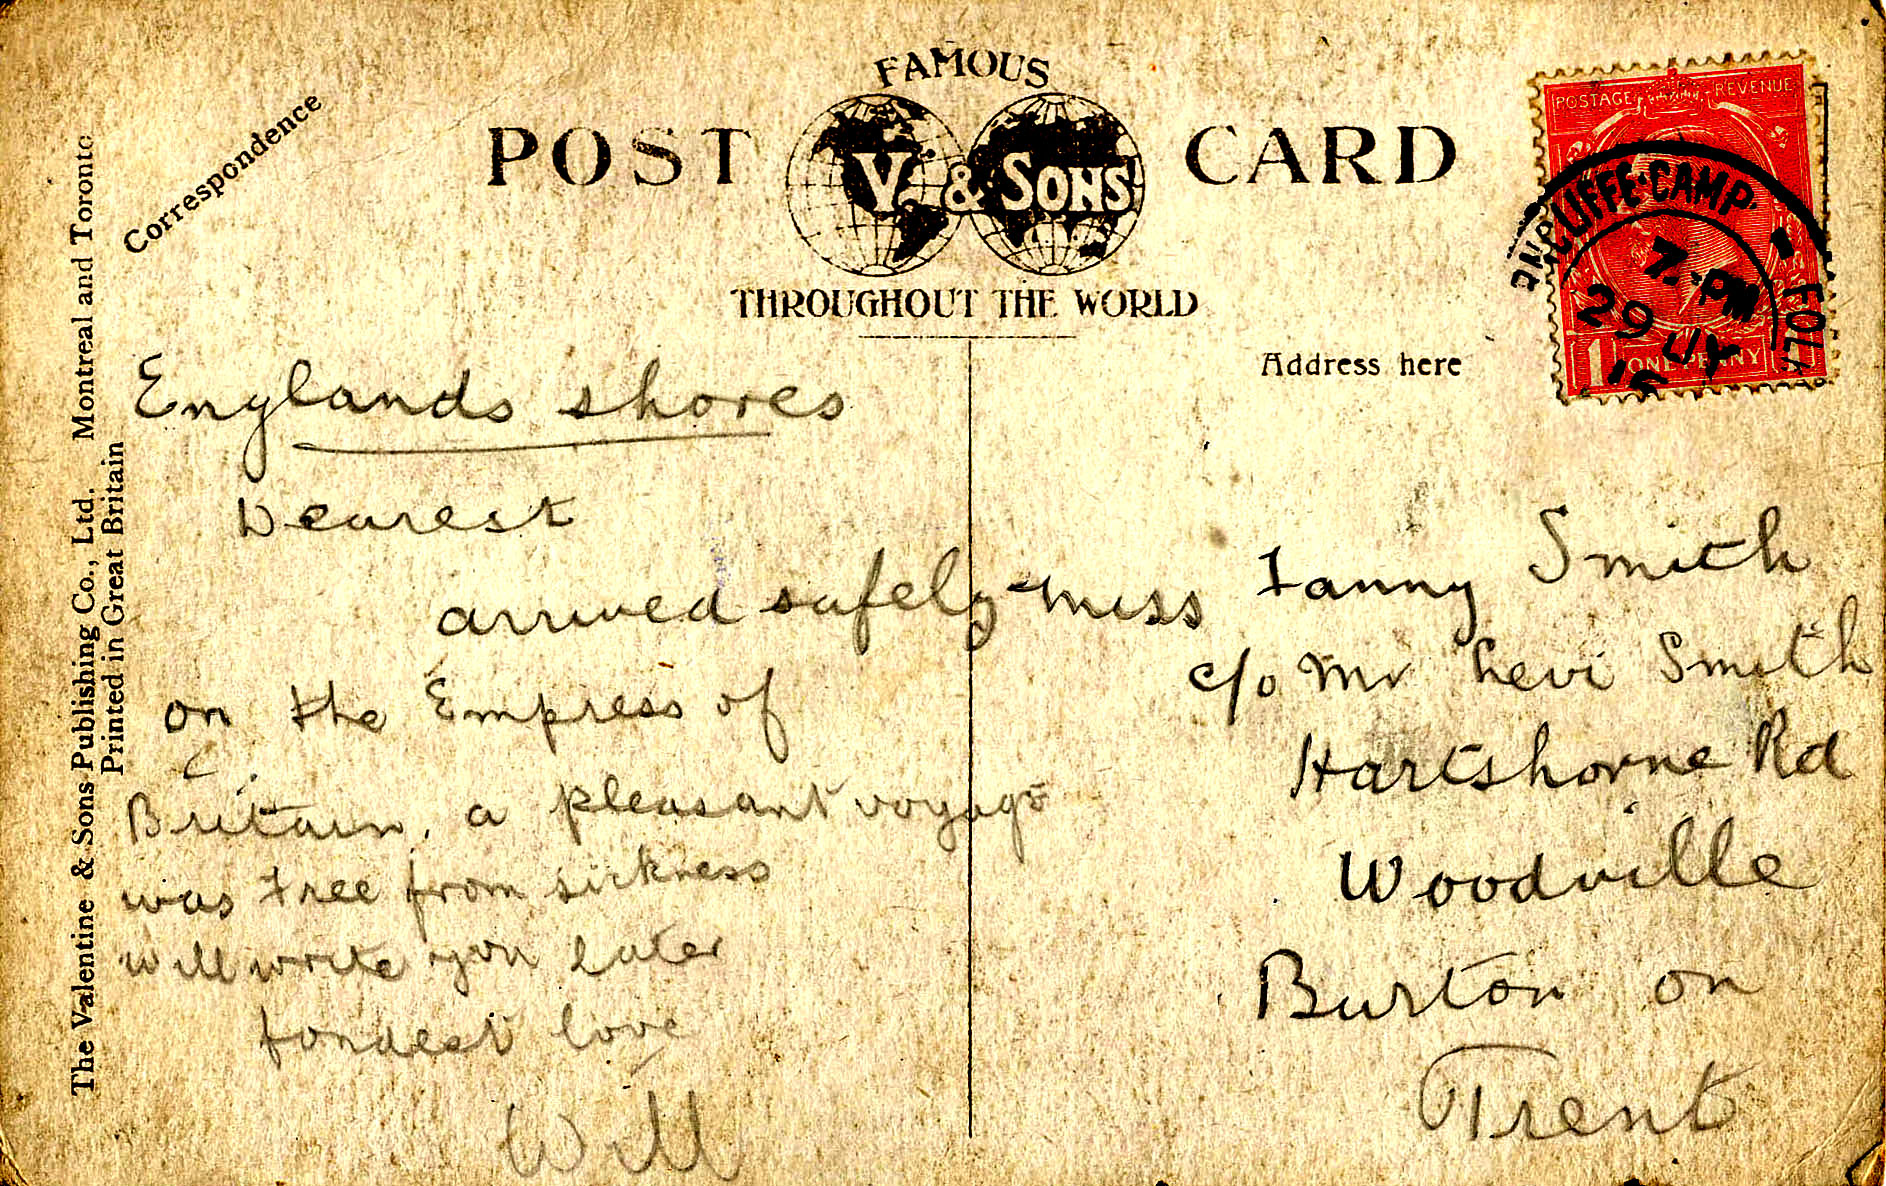 Correspondence
FAMOUS
POST V. & SONS' CARD
THROUGHOUT THE WORLD
Address here
POSTAGE REVENUE
NCLIFFE·CAMP·
7·PM
29 JY
FOLK
ONE PENNY
Englands shores
Dearest
arrived safely
on the Empress of
Britain, a pleasant voyage
was free from sickness
will write you later
fondest love
Will
Miss Fanny Smith
c/o Mr Levi Smith
Hartshorne Rd
Woodville
Burton on
Trent
The Valentine & Sons Publishing Co., Ltd. Montreal and Toronto
Printed in Great Britain